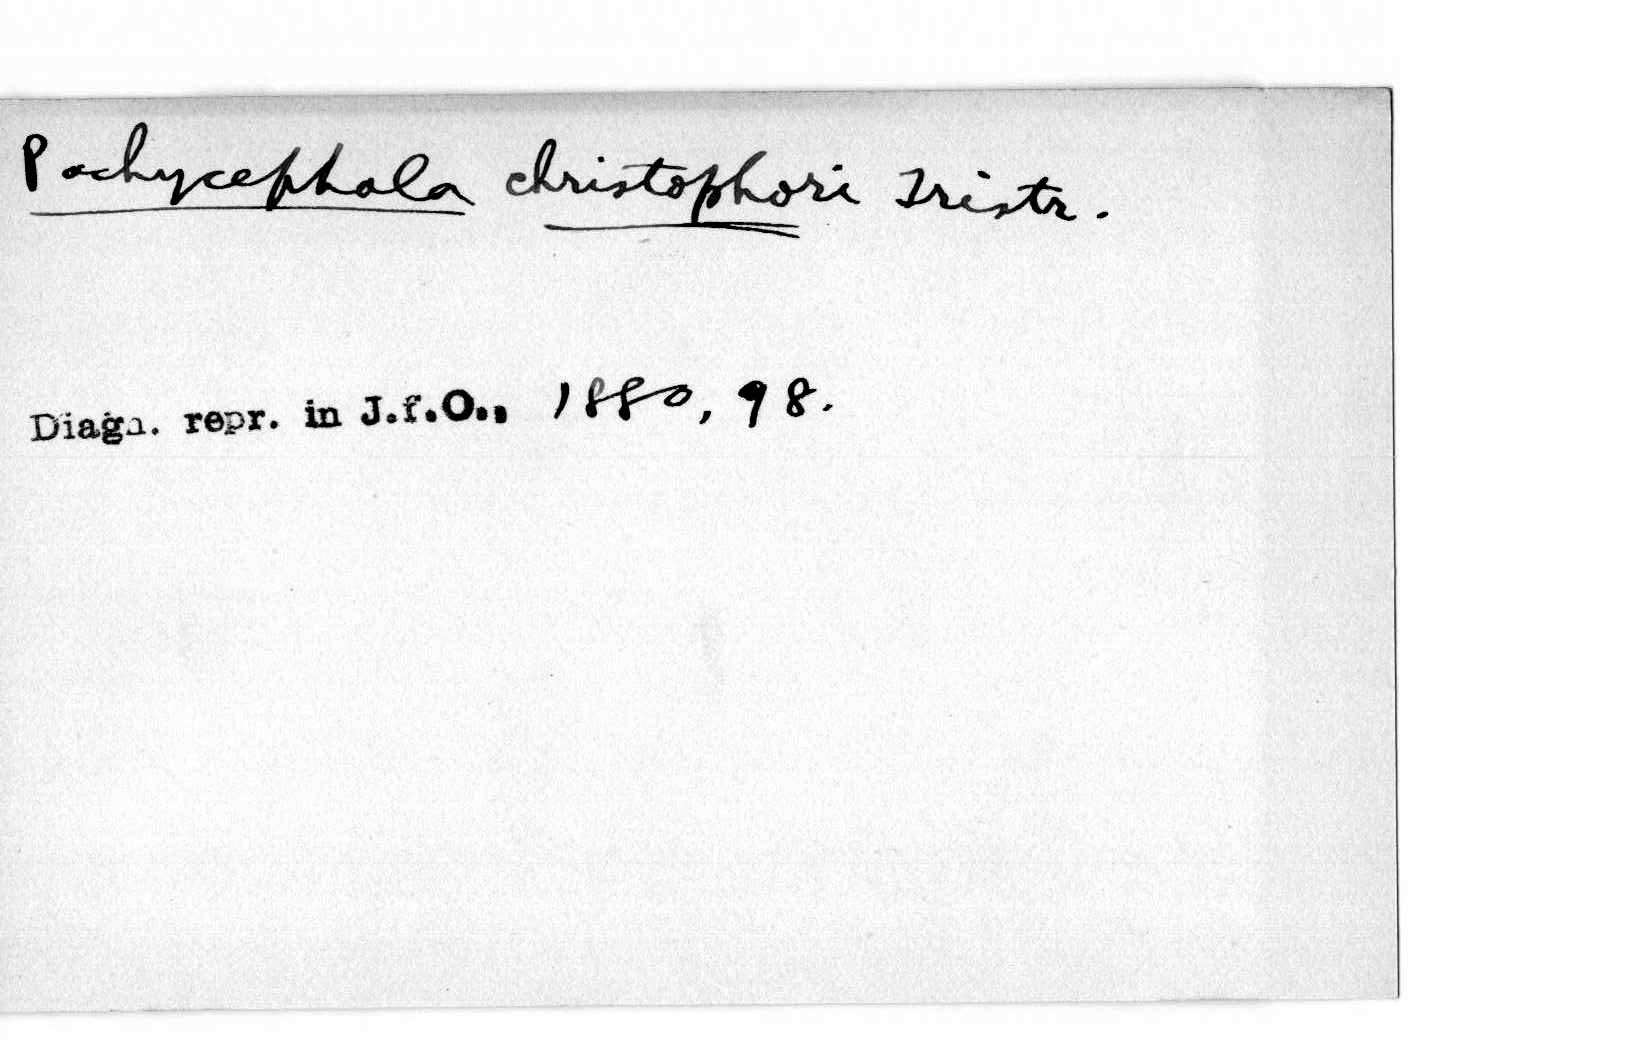 Pachycephala christophori Tristr.
Diagn. repr. in J.f.O., 1880, 98.